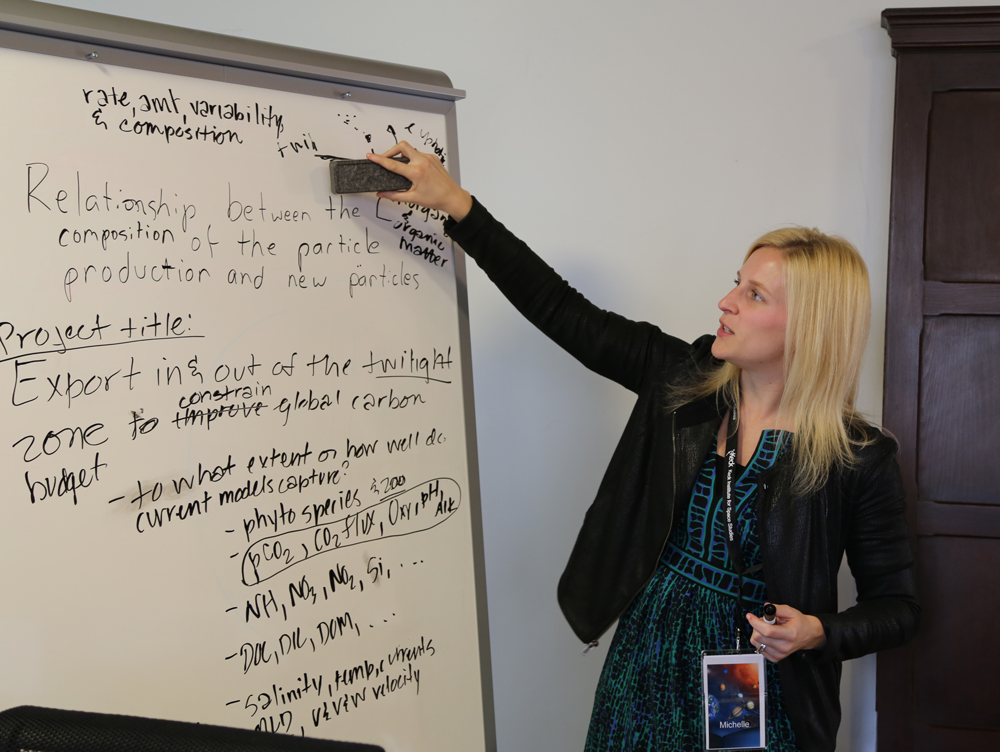 rate, amt, variability,
& composition
twili
Relationship between the
composition of the particle
production and new particles
&
organic
matter
Project title:
Export in & out of the twilight
constrain
zone to improve global carbon
budget
- to what extent or how well do
current models capture?
- phyto species & zoo
- pCO2, CO2 flux, Oxy, pH,
Alk
- NH, NO3, NO2, Si, ...
- DOC, DIC, DOM, ...
- salinity, temp, currents
MLD, v & v & w velocity
Keck Institute for Space Studies
Michelle